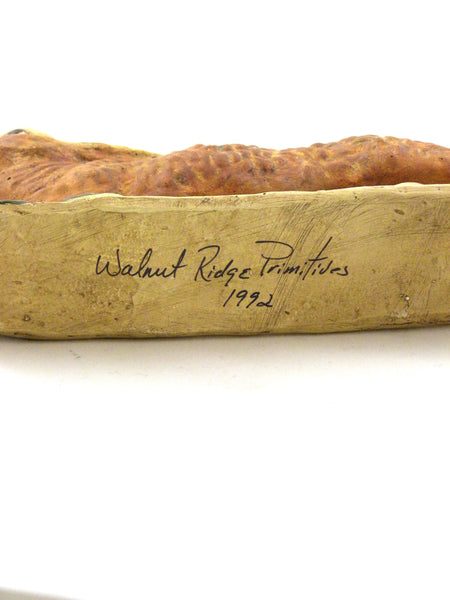 Walnut Ridge Primitives
1992